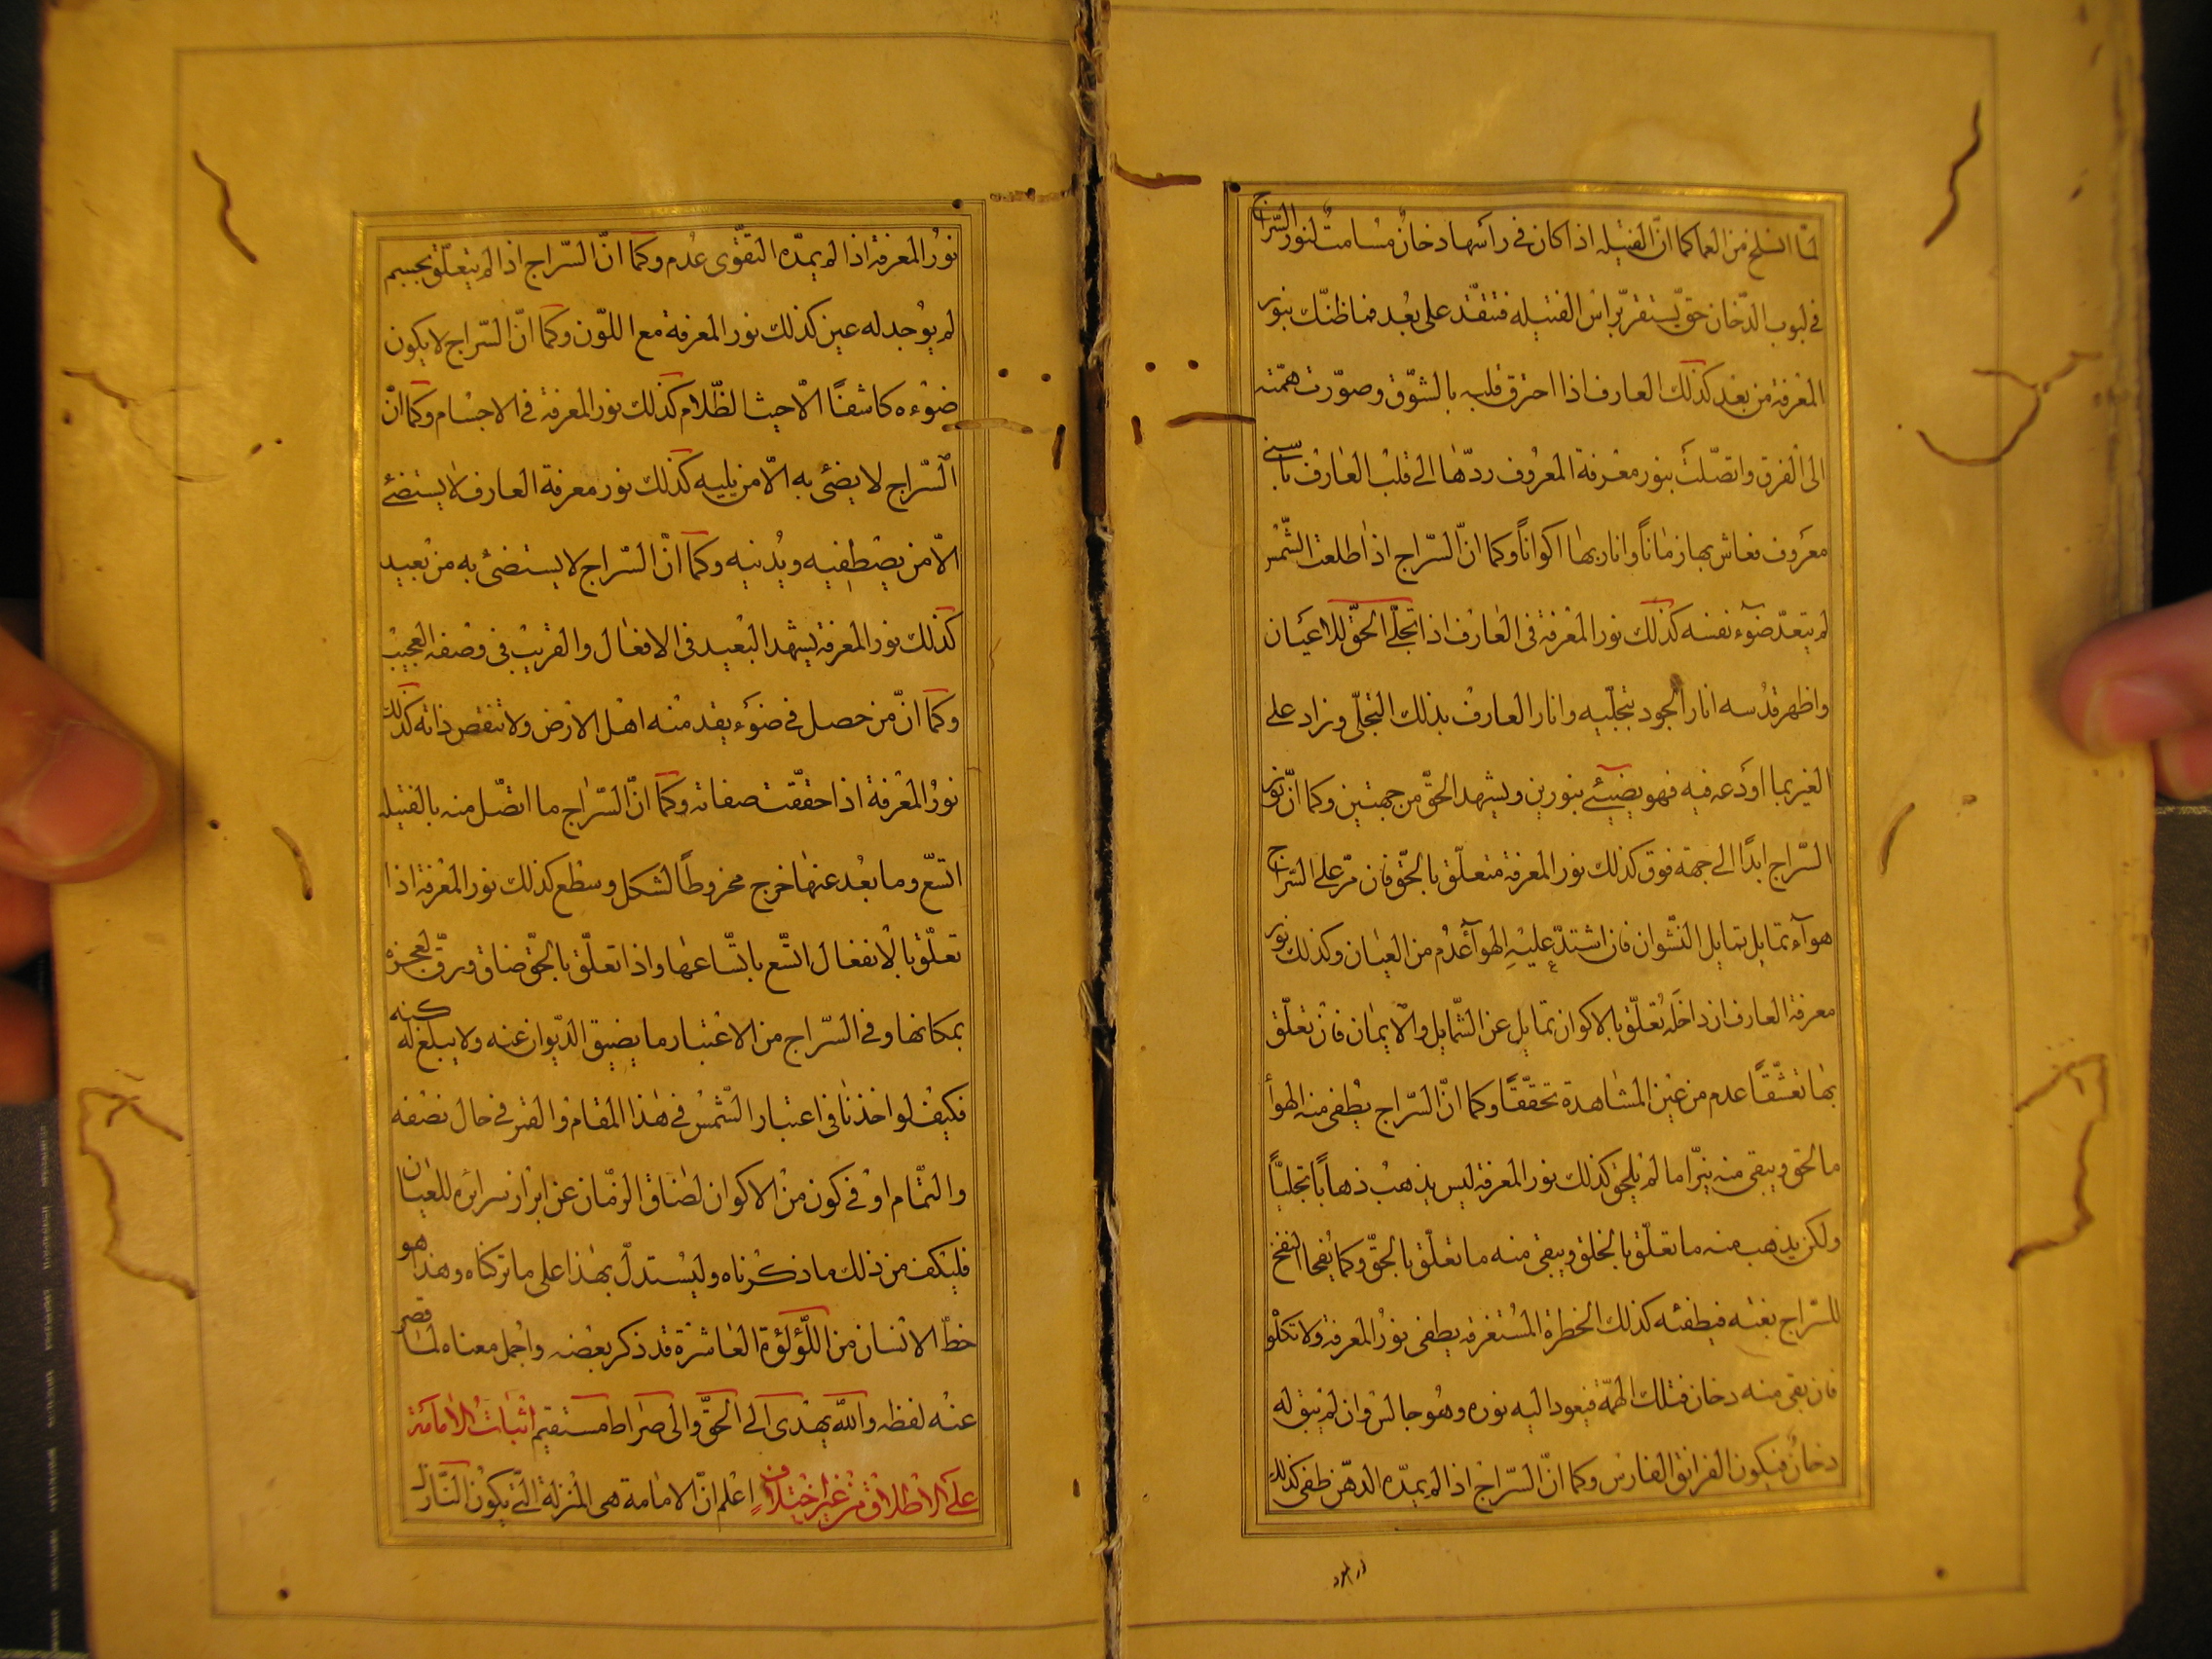 لمّا انسلخ من العما كما انّ الفتيله اذا كان فى رأسها دخانٌ مسامتٌ لنور السّراج
فى لبوب الدّخان حتى يستقرّ براس الفتيله فتتقّد على بُعد فما ظنّك بنور
المعرفة من بعد كذلك العارف اذا احترق قلبه بالشوّق وصوّرت همّته
الى الفرق واتصّلت بنور معرفة المعروف ردّها الى قلب العارف باسنى
معروف فعاش بها زماناً وانار بها اكواناً وكما انّ السّراج اذا طلعت الشّمس
لم يتعدّ ضوء نفسه كذلك نور المعرفة فى العارف اذا تجلّى الحقّ للاعيان
واظهر قدسه انار الجود بتجلّيه وانار العارف بذلك التجلّى وزاد على
الغير بما اودعه فيه فهو يضيئ بنورين ويشهد الحقّ من جهتين وكما انّ نور
السّراج ابدًا الى جهة فوق كذلك نور المعرفة متعلّق بالحقّ فان مرّ على السّراج
هوآء تمايل تمايل النّشوان فان اشتدّ عليه الهوآ عُدم من العيان وكذلك نور
معرفة العارف ان داخله تعلّق بالاكوان تمايل عن الشّمايل والايمان فان تعلّق
بها تعشّقًا عدم من عين المشاهدة تحقّقًا وكما انّ السّراج يطفى منه الهوأ
ما لحق ويبقى منه نيّرا ما لم يلحق كذلك نور المعرفة ليس يذهب ذهاباً تجليّاً
ولكن يذهب منه ما تعلّق بالخلق ويبقى منه ما تعلّق بالحقّ وكما يفجا النفخ
للسّراج بغته فيطفئه كذلك الخطرة المستغرقه يطفى نورُ المعرفة ولا تكلؤ
فان بقى منه دخان فتلك الهمّة فيعود اليه نوره وهو جالس وان لم يبق له
دخانٌ فيكون الفرانق الفارس وكما انّ السّراج اذا لم يمدّه الدهن طفى كذلك
نورُ المعرفة اذا لم يمدّه التقوّى عُدم وكما انّ السّراج اذا لم يتعلّق بجسم
لم يوجد له عين كذلك نور المعرفة مع اللوّن وكما انّ السّراج لا يكون
ضوءه كاشفًا الّا حيث الظّلام كذلك نور المعرفة فى الاجسام وكما انّ
السّراج لا يضئ به الّا من يليه كذلك نور معرفة العارف لا يستضئ
الّا من يصطفيه ويُدنيه وكما انّ السّراج لا يستضئ به من بعيد
كذلك نور المعرفة يشهد البعيد فى الافعال والقريب فى وصفه العجيب
وكما انّ من حصل فى ضوء يقد منه اهل الارض ولا تنقص ذاته كذلك
نورُ المعرفة اذا حقّقت صفاته وكما انّ السّراج ما اتصّل منه بالفتيله
اتسّع وما بعُد عنها خرج مخروطًا لشكل وسطع كذلك نور المعرفة اذا
تعلّق بالانفعال اتسّع باتّساعها واذا تعلّق بالحقّ ضاق ورقّ لعجزه
بمكانها وفى السّراج من الاعتبار ما يضيق الدّيوان عنه ولا يبلغ له كنه
فكيف لو اخذنا فى اعتبار الشّمس فى هذا المقام والقمر فى حال نصفه
والتّمام او فى كون من الاكوان لضاق الزمّان عن ابراز سرائره للعيان
فليكف من ذلك ما ذكرناه وليُستدلّ بهذا على ما تركناه وهذا هو
حظّ الانسان من اللّؤلؤة العاشرة قد ذكر بعضه واجمل معناه لمّا قصر
عنه لفظه والله يهدى الى الحقّ والى صراط مستقيم اثبات الامامة
على الاطلاق من غير اختلاف اعلم انّ الامامة هى المنزلة التّى يكون النّازل